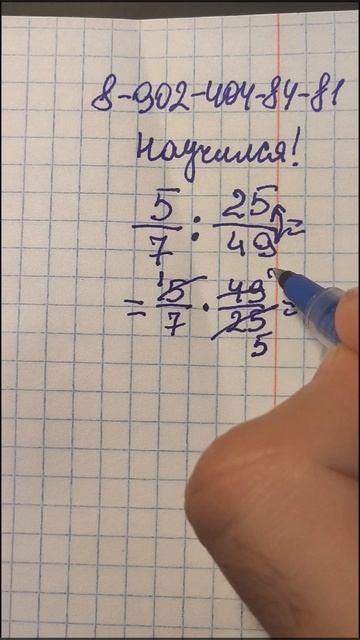 8-902-404-84-81
Научился!
5/7 : 25/49 =
= 5/7 · 49/25 =
1 7 5